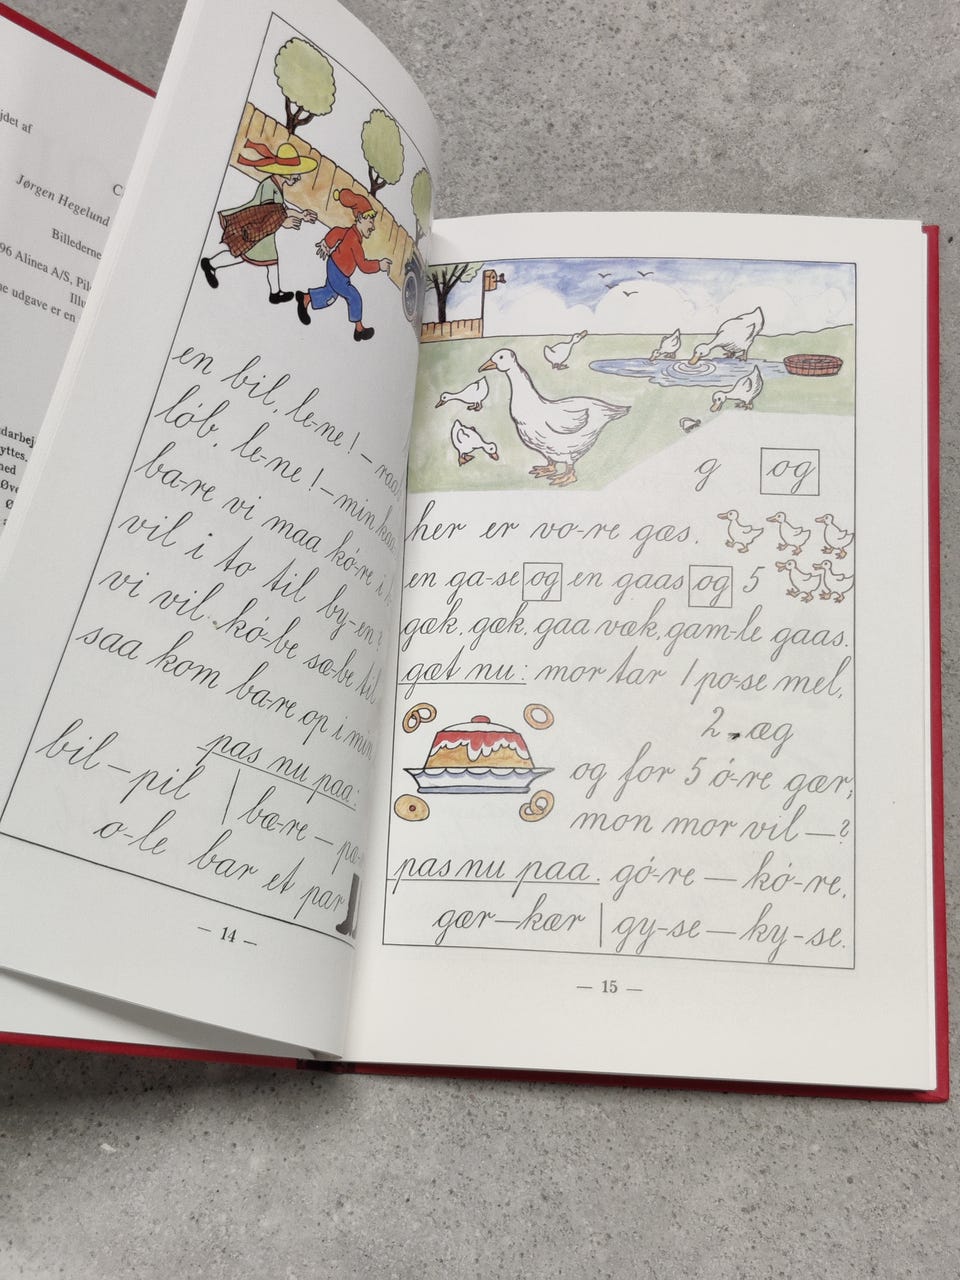 jdet af
Jørgen Hegelund
Billederne
96 Alinea A/S,
ne udgave er en
en bil, le-ne! – raa
løb, le-ne! – min
ba-re vi maa kø-re i
vil i to til by-en?
vi vil kø-be sæ-be til
saa kom ba-re op i min
pas nu paa:
bil – pil | bæ-re –
o-le bar et par
— 14 —
g og
her er vo-re gæs.
en ga-se og en gaas og 5
gæk, gæk, gaa væk, gam-le gaas.
gæt nu: mor tar 1 po-se mel,
2 æg
og for 5 ø-re gær;
mon mor vil — ?
pas nu paa. gø-re — kø-re,
gær — kær | gy-se — ky-se.
— 15 —